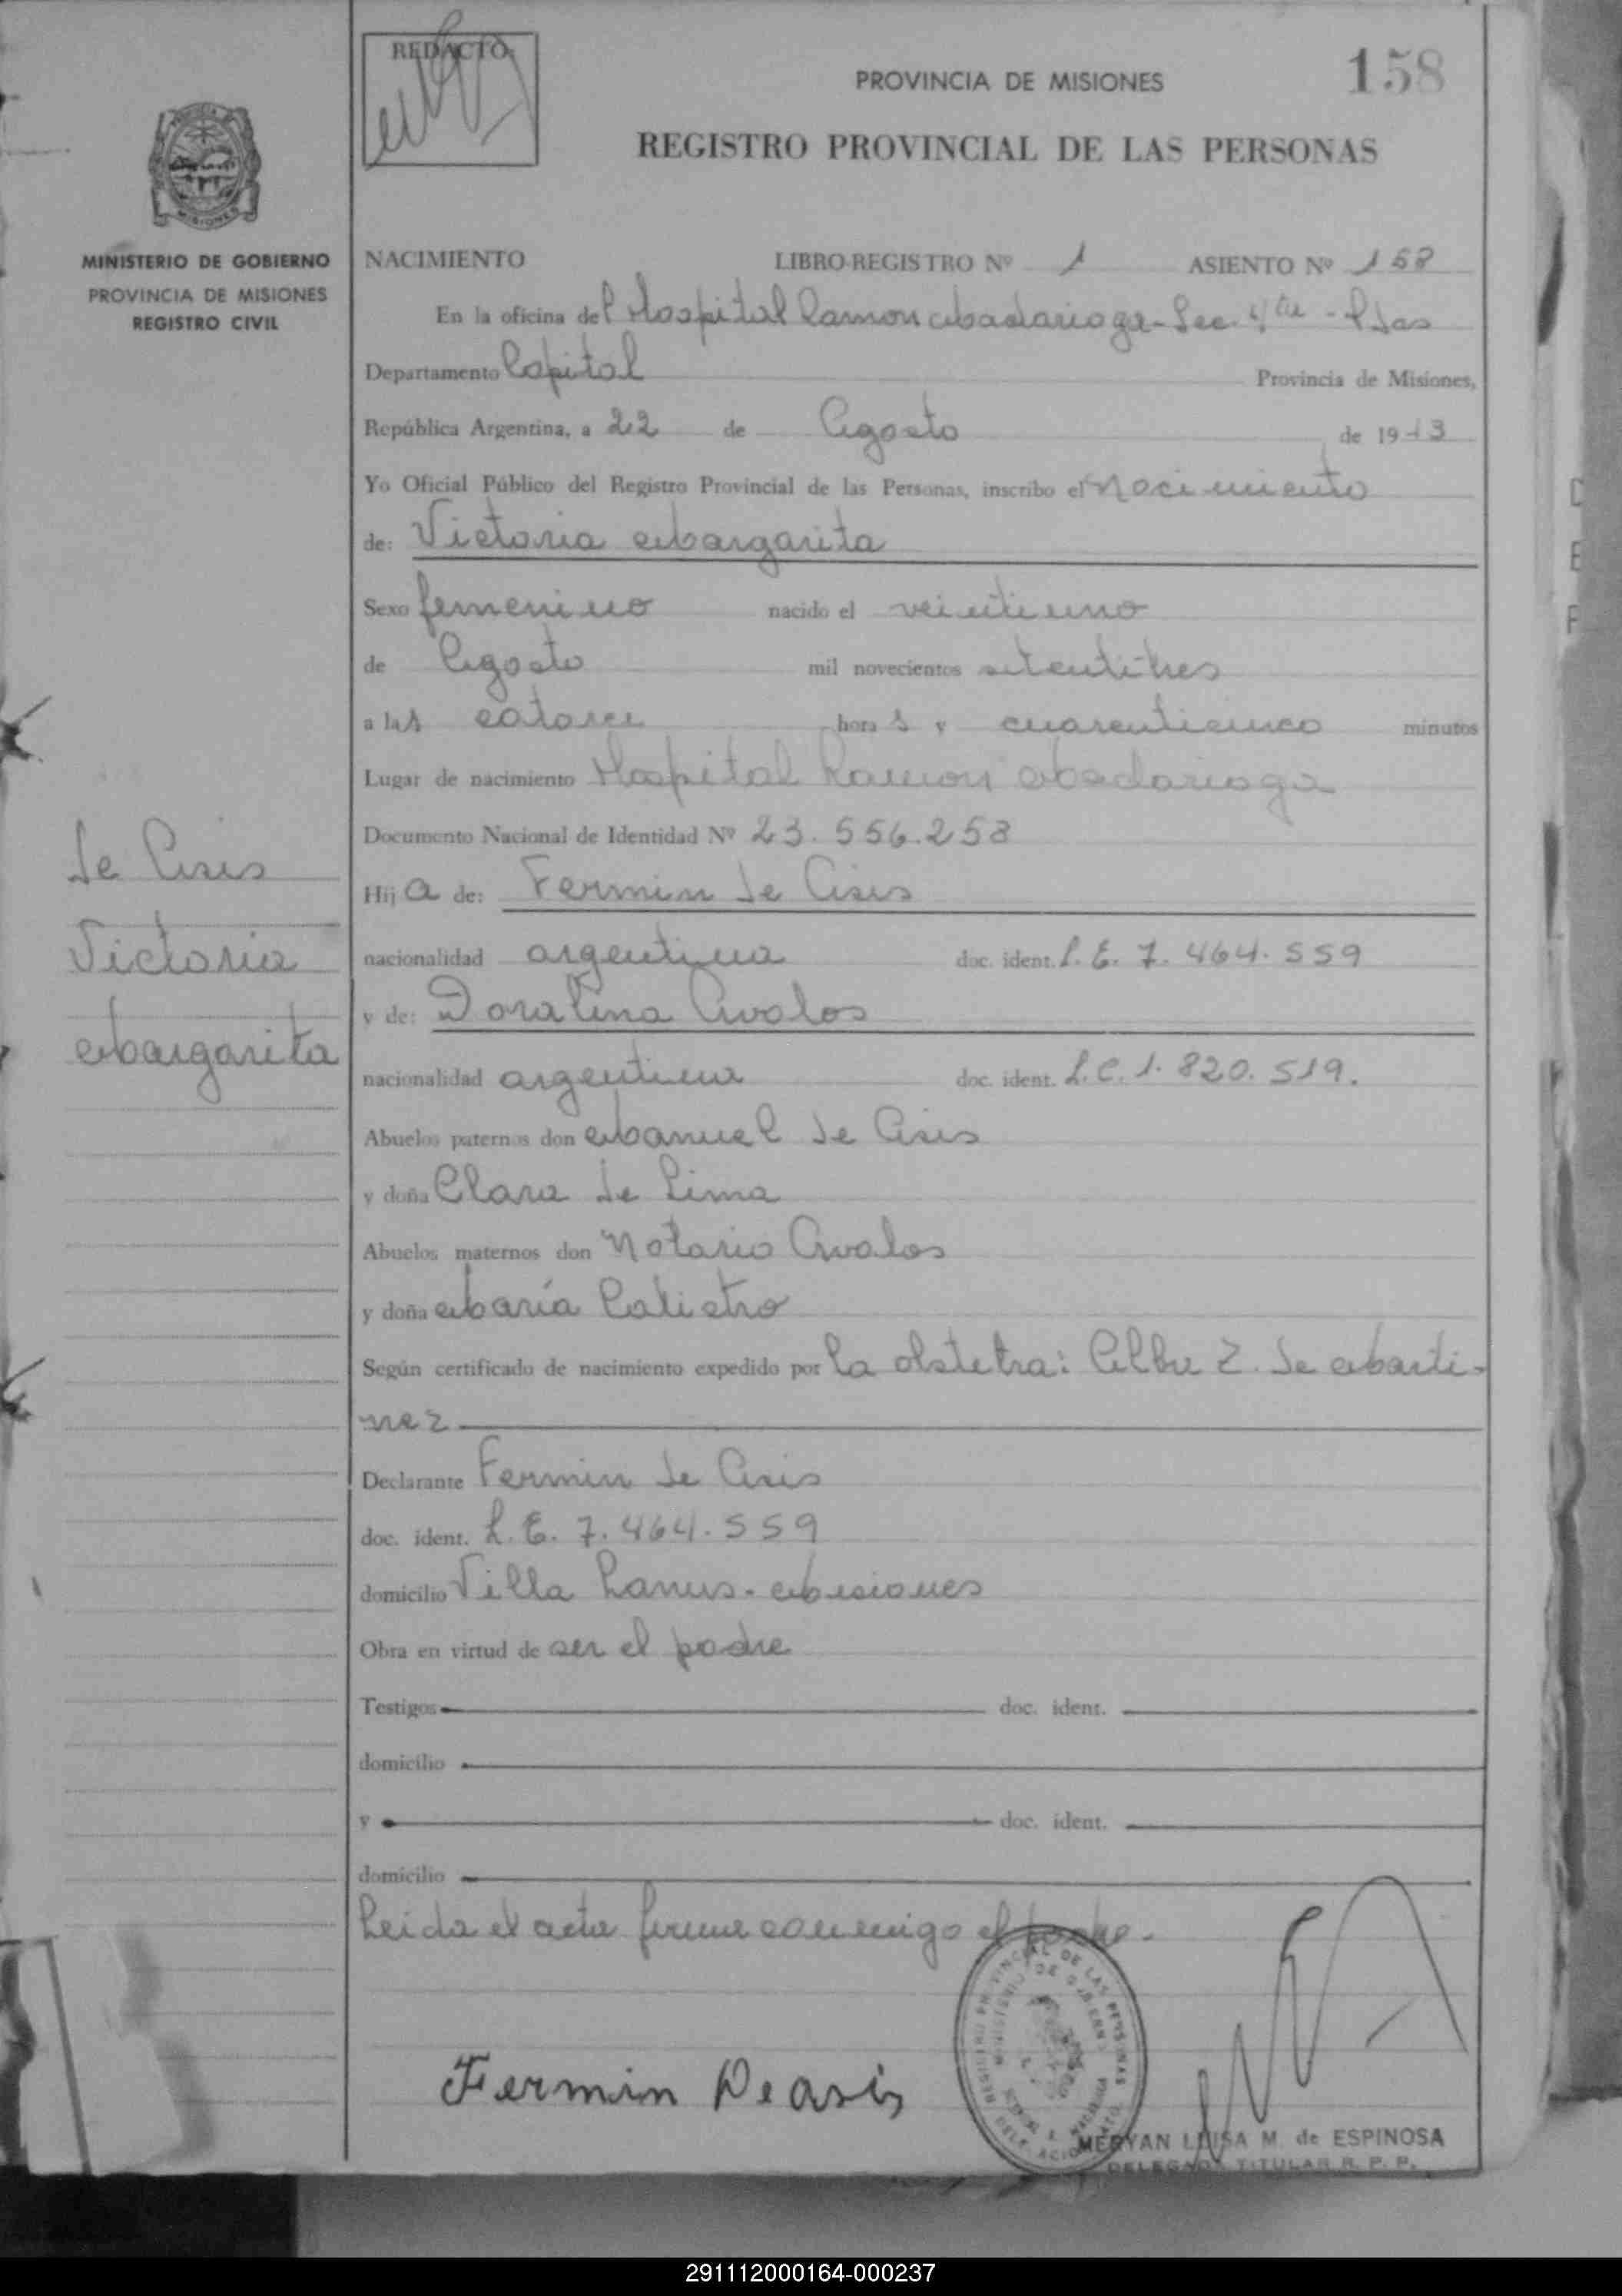 REDACTO
158
PROVINCIA DE MISIONES
REGISTRO PROVINCIAL DE LAS PERSONAS
MISIONES
MINISTERIO DE GOBIERNO
PROVINCIA DE MISIONES
REGISTRO CIVIL
NACIMIENTO LIBRO-REGISTRO Nº 1 ASIENTO Nº 158
En la oficina del Hospital Ramon Madariaga - Sec. 4ta - Pdas
Departamento Capital Provincia de Misiones,
República Argentina, a 22 de Agosto de 1973
Yo Oficial Público del Registro Provincial de las Personas, inscribo el Nacimiento
de: Victoria Margarita
Sexo femenino nacido el veintiuno
de Agosto mil novecientos setentitres
a las catorce horas y cuarenticinco minutos
Lugar de nacimiento Hospital Ramon Madariaga
Documento Nacional de Identidad Nº 23.556.258
Hija de: Fermin de Asis
nacionalidad argentina doc. ident. L.E. 7.464.559
y de: Doralina Avalos
nacionalidad argentina doc. ident. L.C. 1.820.519.
Abuelos paternos don Manuel de Asis
y doña Clara de Lima
Abuelos maternos don Notario Avalos
y doña María Calistro
Según certificado de nacimiento expedido por la obstetra: Alba Z. de Marti-
nez
Declarante Fermin de Asis
doc. ident. L.E. 7.464.559
domicilio Villa Lanus - Misiones
Obra en virtud de ser el padre
Testigos doc. ident.
domicilio
y doc. ident.
domicilio
Leida el acta firma conmigo el padre.
de Asis
Victoria
Margarita
Fermin Deasis
MERYAN LUISA M. de ESPINOSA
DELEGADA TITULAR R. P. P.
291112000164-000237